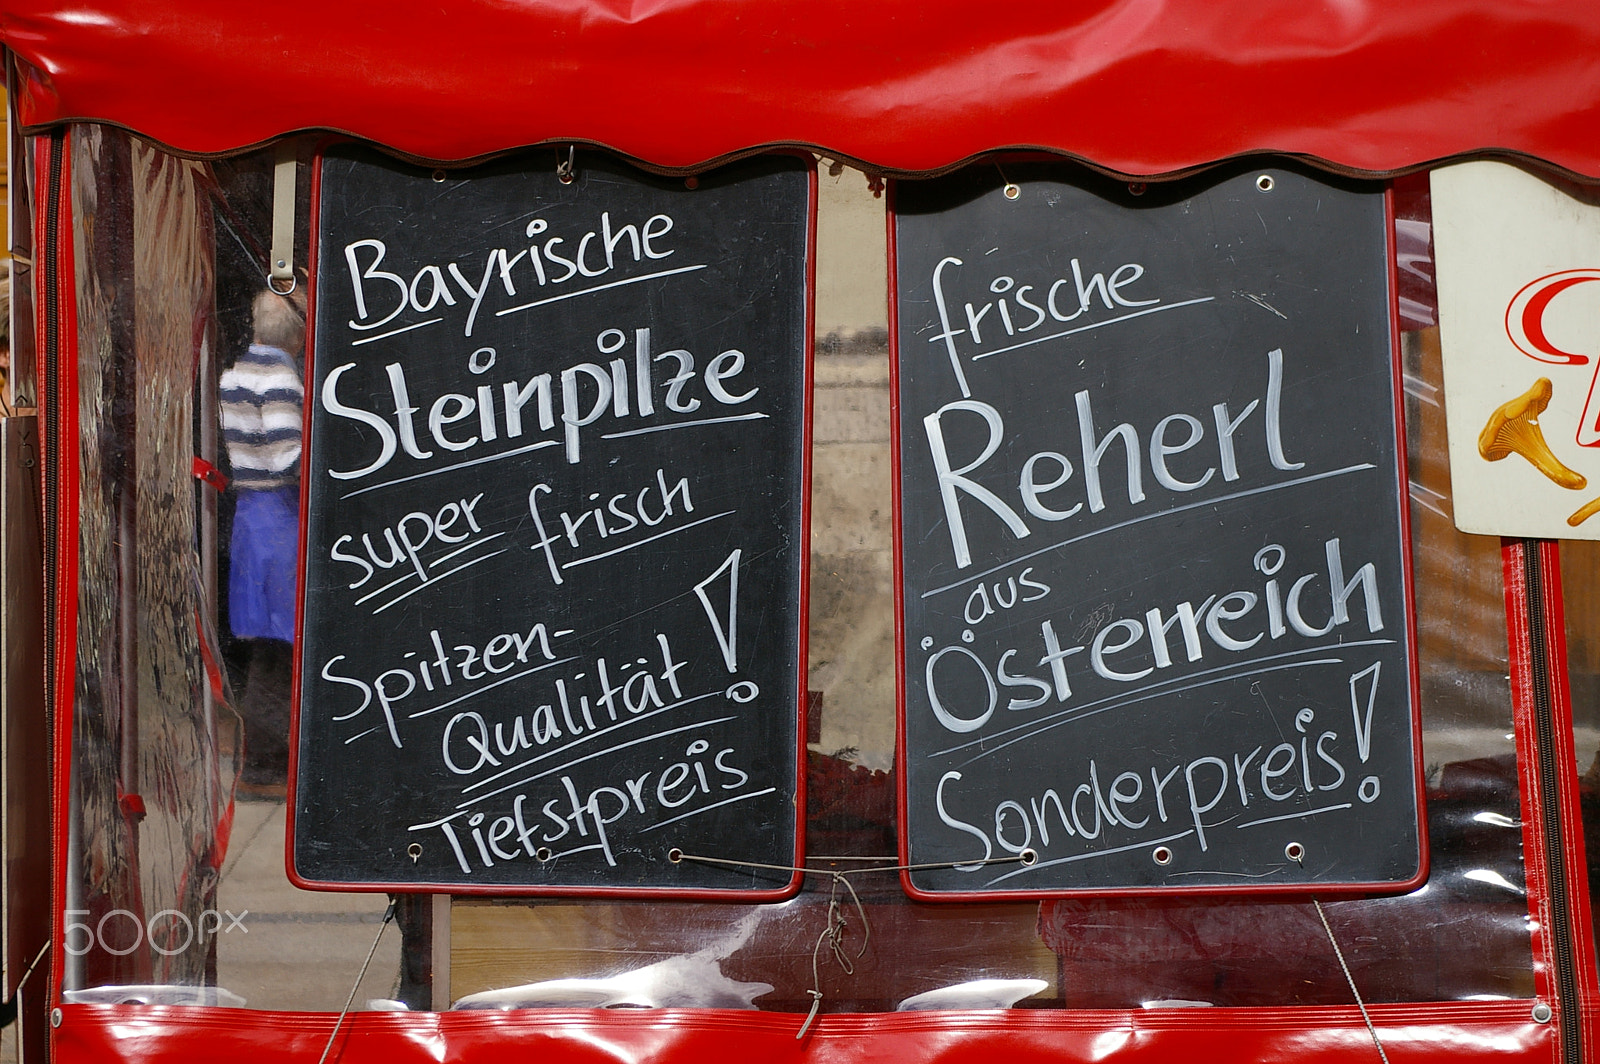 Bayrische
Steinpilze
super frisch
Spitzen-
Qualität!
Tiefstpreis
frische
Reherl
aus
Österreich
Sonderpreis!
500px